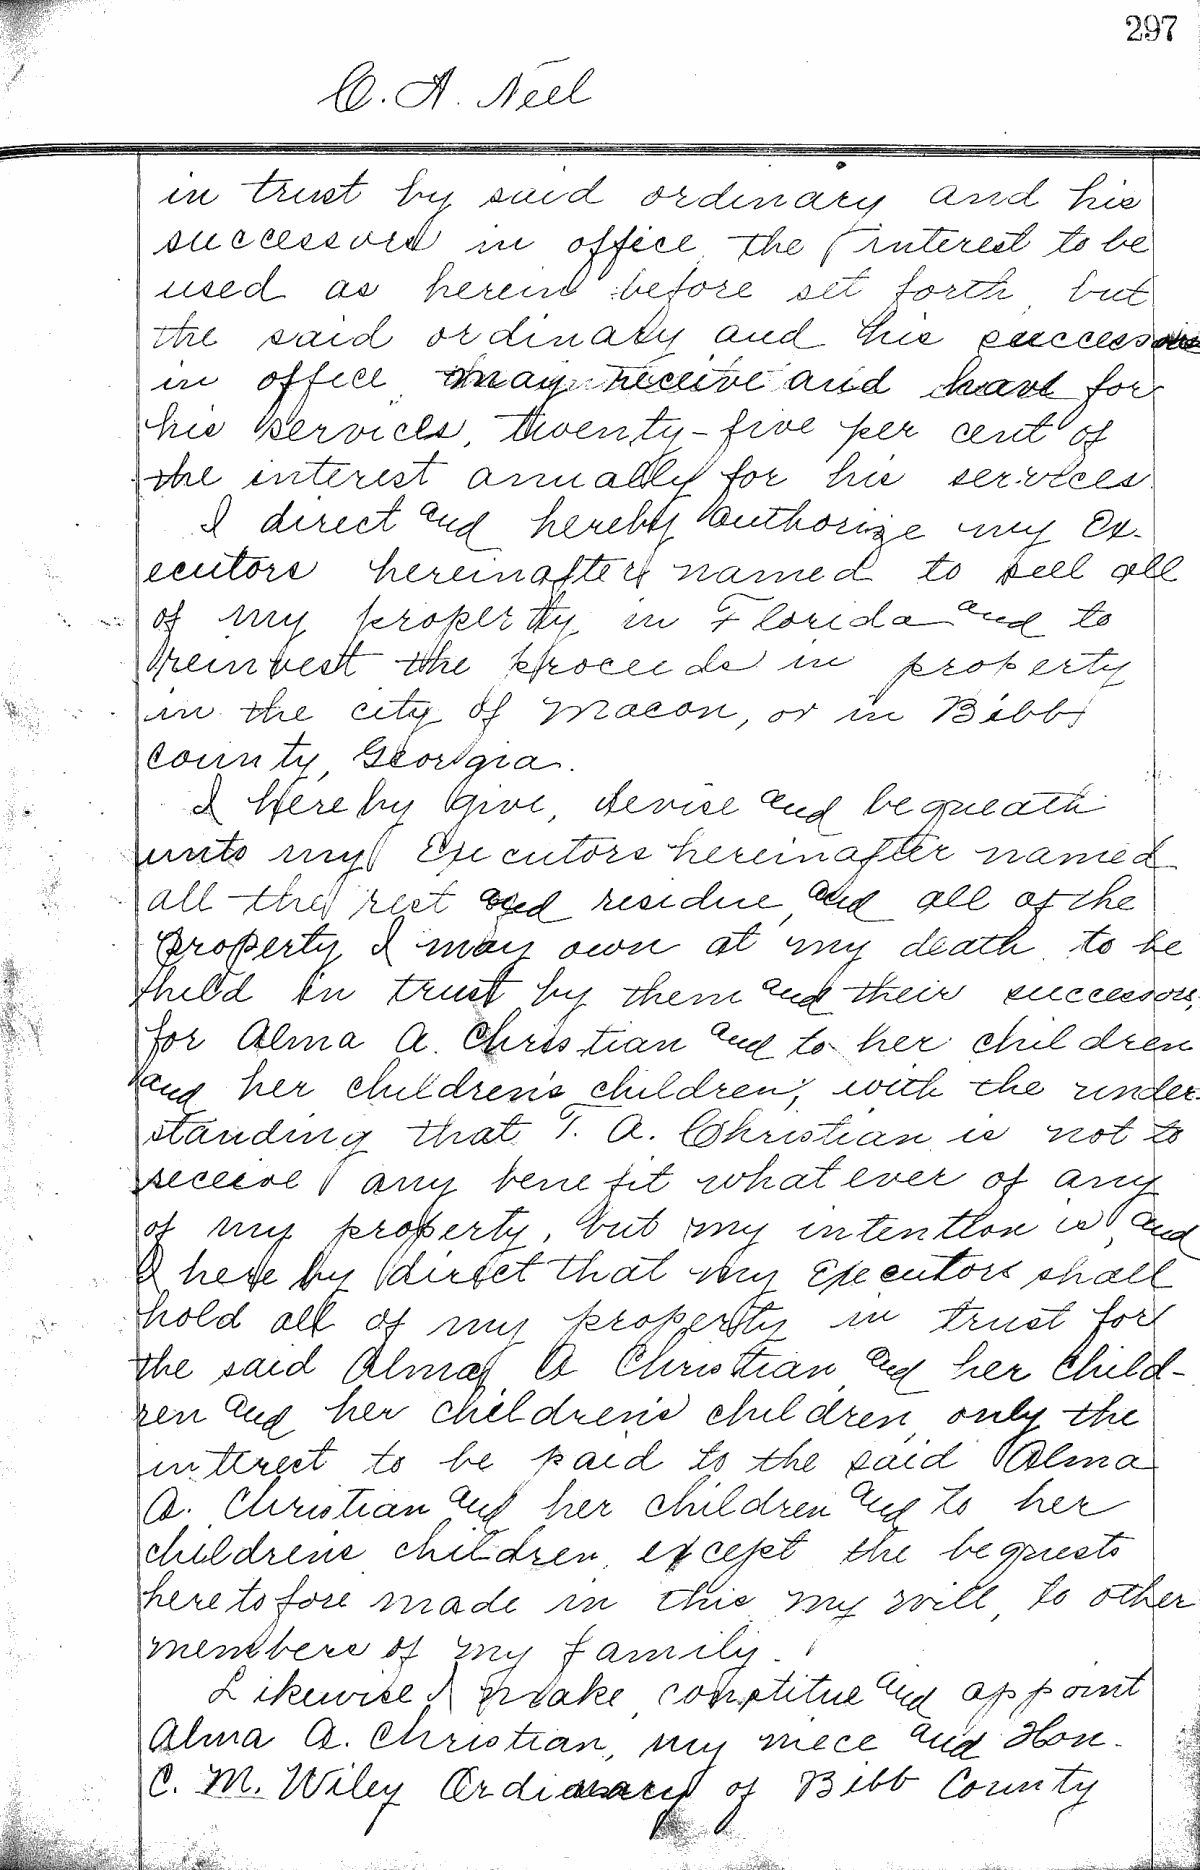 297
C. A. Neel
in trust by said ordinary and his
successors in office the interest to be
used as herein before set forth, but
the said ordinary and his successors
in office may receive and have for
his services, twenty-five per cent of
the interest anually for his services.
I direct and hereby authorize my Ex-
ecutors hereinafter named to sell all
of my property in Florida and to
reinvest the proceeds in property
in the city of Macon, or in Bibb
County, Georgia.
I hereby give, devise and bequeath
unto my Executors hereinafter named
all the rest and residue, and all of the
property I may own at my death, to be
held in trust by them and their successors,
for Alma A. Christian and to her children
and her children's children, with the under-
standing that T. A. Christian is not to
receive any benefit whatever of any
of my property, but my intention is, and
I hereby direct that my Executors shall
hold all of my property in trust for
the said Alma A Christian and her child-
ren and her children's children, only the
interest to be paid to the said Alma
A. Christian and her children and to her
childrens children, except the bequests
heretofore made in this my will, to other
members of my family.
Likewise I make, constitue and appoint
Alma A. Christian, my niece and Hon.
C. M. Wiley Ordinary of Bibb County